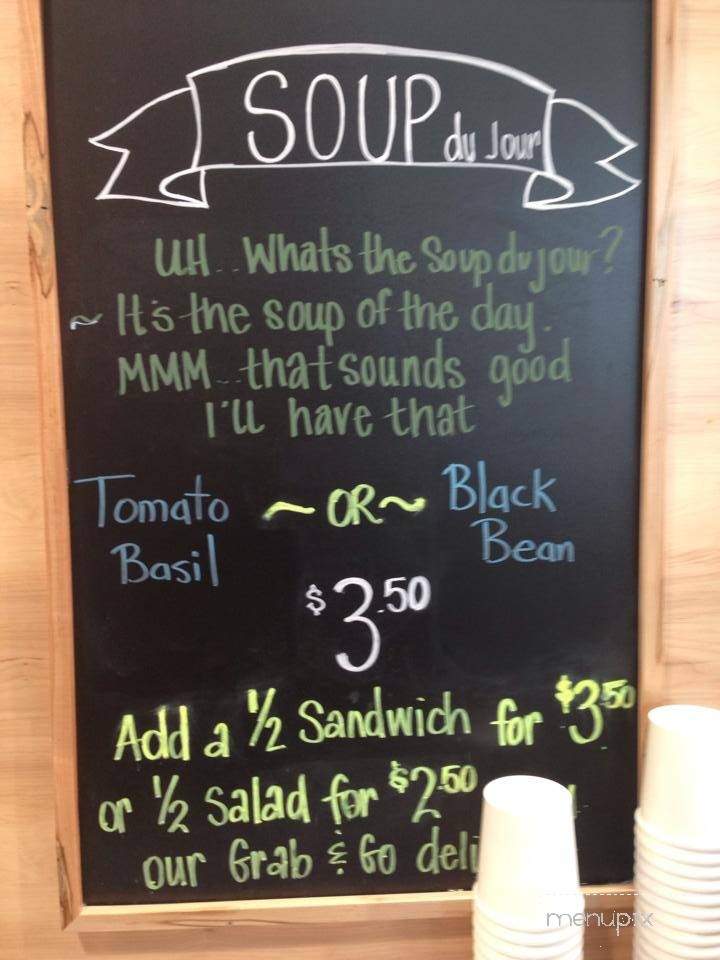 SOUP du Jour
UH.. Whats the Soup du jour?
~ It's the soup of the day.
MMM...that sounds good
I'll have that
Tomato Basil ~ OR ~ Black Bean
$3.50
Add a 1/2 Sandwich for $3.50
or 1/2 Salad for $2.50
our Grab & Go deli
menupix